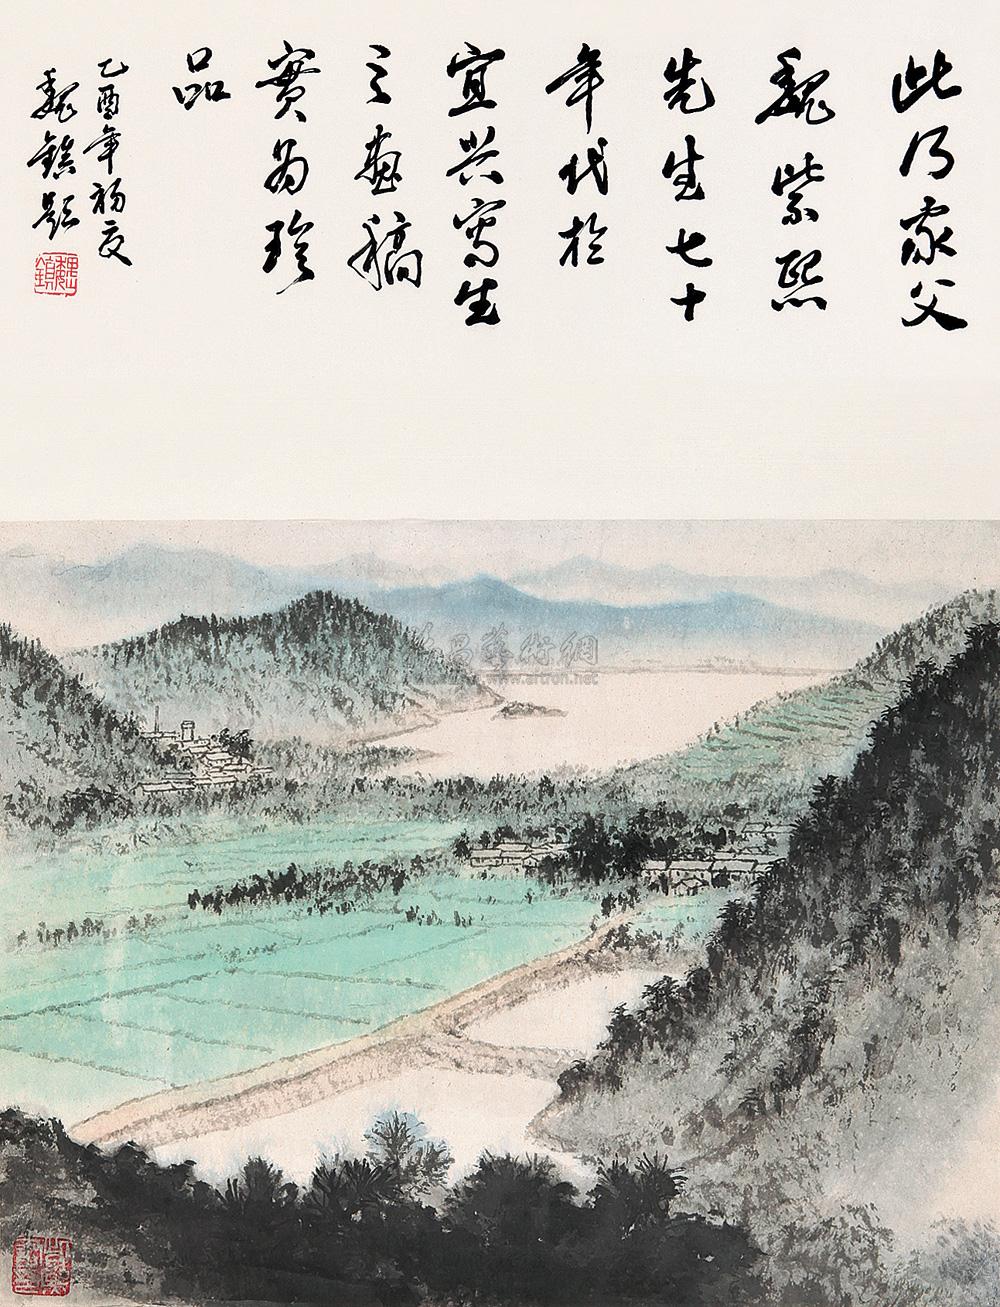 此乃家父
魏紫熙
先生七十
年代於
宜兴写生
之画稿
实为珍
品
乙酉年初夏
魏镇题
魏镇
雅昌藝術網
www.artron.net